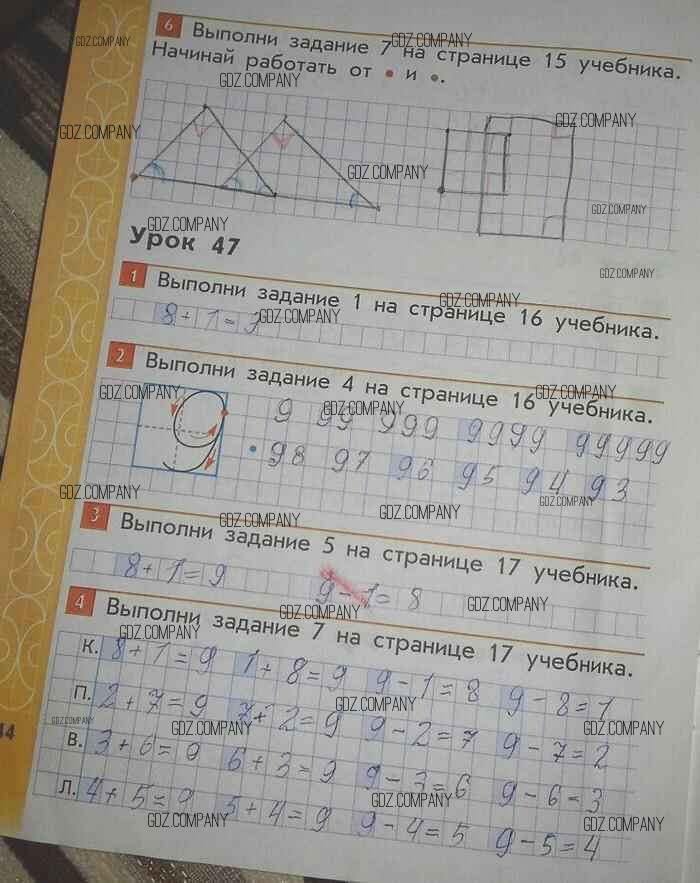 6 Выполни задание 7 на странице 15 учебника.
Начинай работать от • и •.
Урок 47
1 Выполни задание 1 на странице 16 учебника.
8 + 1 = 7
2 Выполни задание 4 на странице 16 учебника.
9 99 999 9999 99999
• 98 97 96 95 94 93
3 Выполни задание 5 на странице 17 учебника.
8 + 1 = 9 9 - 1 = 8
4 Выполни задание 7 на странице 17 учебника.
К. 8 + 1 = 9 1 + 8 = 9 9 - 1 = 8 9 - 8 = 1
П. 2 + 7 = 9 7 + 2 = 9 9 - 2 = 7 9 - 7 = 2
В. 3 + 6 = 9 6 + 3 = 9 9 - 3 = 6 9 - 6 = 3
Л. 4 + 5 = 9 5 + 4 = 9 9 - 4 = 5 9 - 5 = 4
44
GDZ.COMPANY